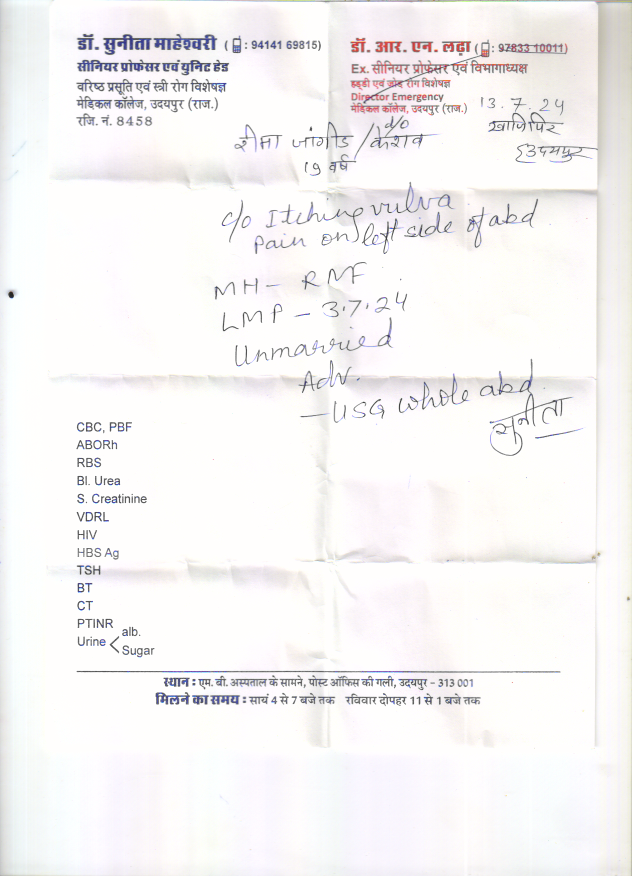 डॉ. सुनीता माहेश्वरी ( : 94141 69815)
सीनियर प्रोफेसर एवं युनिट हेड
वरिष्ठ प्रसूति एवं स्त्री रोग विशेषज्ञ
मेडिकल कॉलेज, उदयपुर (राज.)
रजि. नं. 8458
डॉ. आर. एन. लढ़ा ( : 97833 10011)
Ex. सीनियर प्रोफेसर एवं विभागाध्यक्ष
हड्डी एवं जोड़ रोग विशेषज्ञ
Director Emergency
मेडिकल कॉलेज, उदयपुर (राज.)
13.7.24
उदयपुर
जांगीड / d/o केशव
19 वर्ष
c/o Itching vulva
Pain on left side of abd
MH - RMF
LMP - 3.7.24
Unmarried
Adv.
- USG whole abd.
सुनीता
CBC, PBF
ABORh
RBS
Bl. Urea
S. Creatinine
VDRL
HIV
HBS Ag
TSH
BT
CT
PTINR
Urine < alb.
Sugar
स्थान : एम. बी. अस्पताल के सामने, पोस्ट ऑफिस की गली, उदयपुर - 313 001
मिलने का समय : सायं 4 से 7 बजे तक रविवार दोपहर 11 से 1 बजे तक